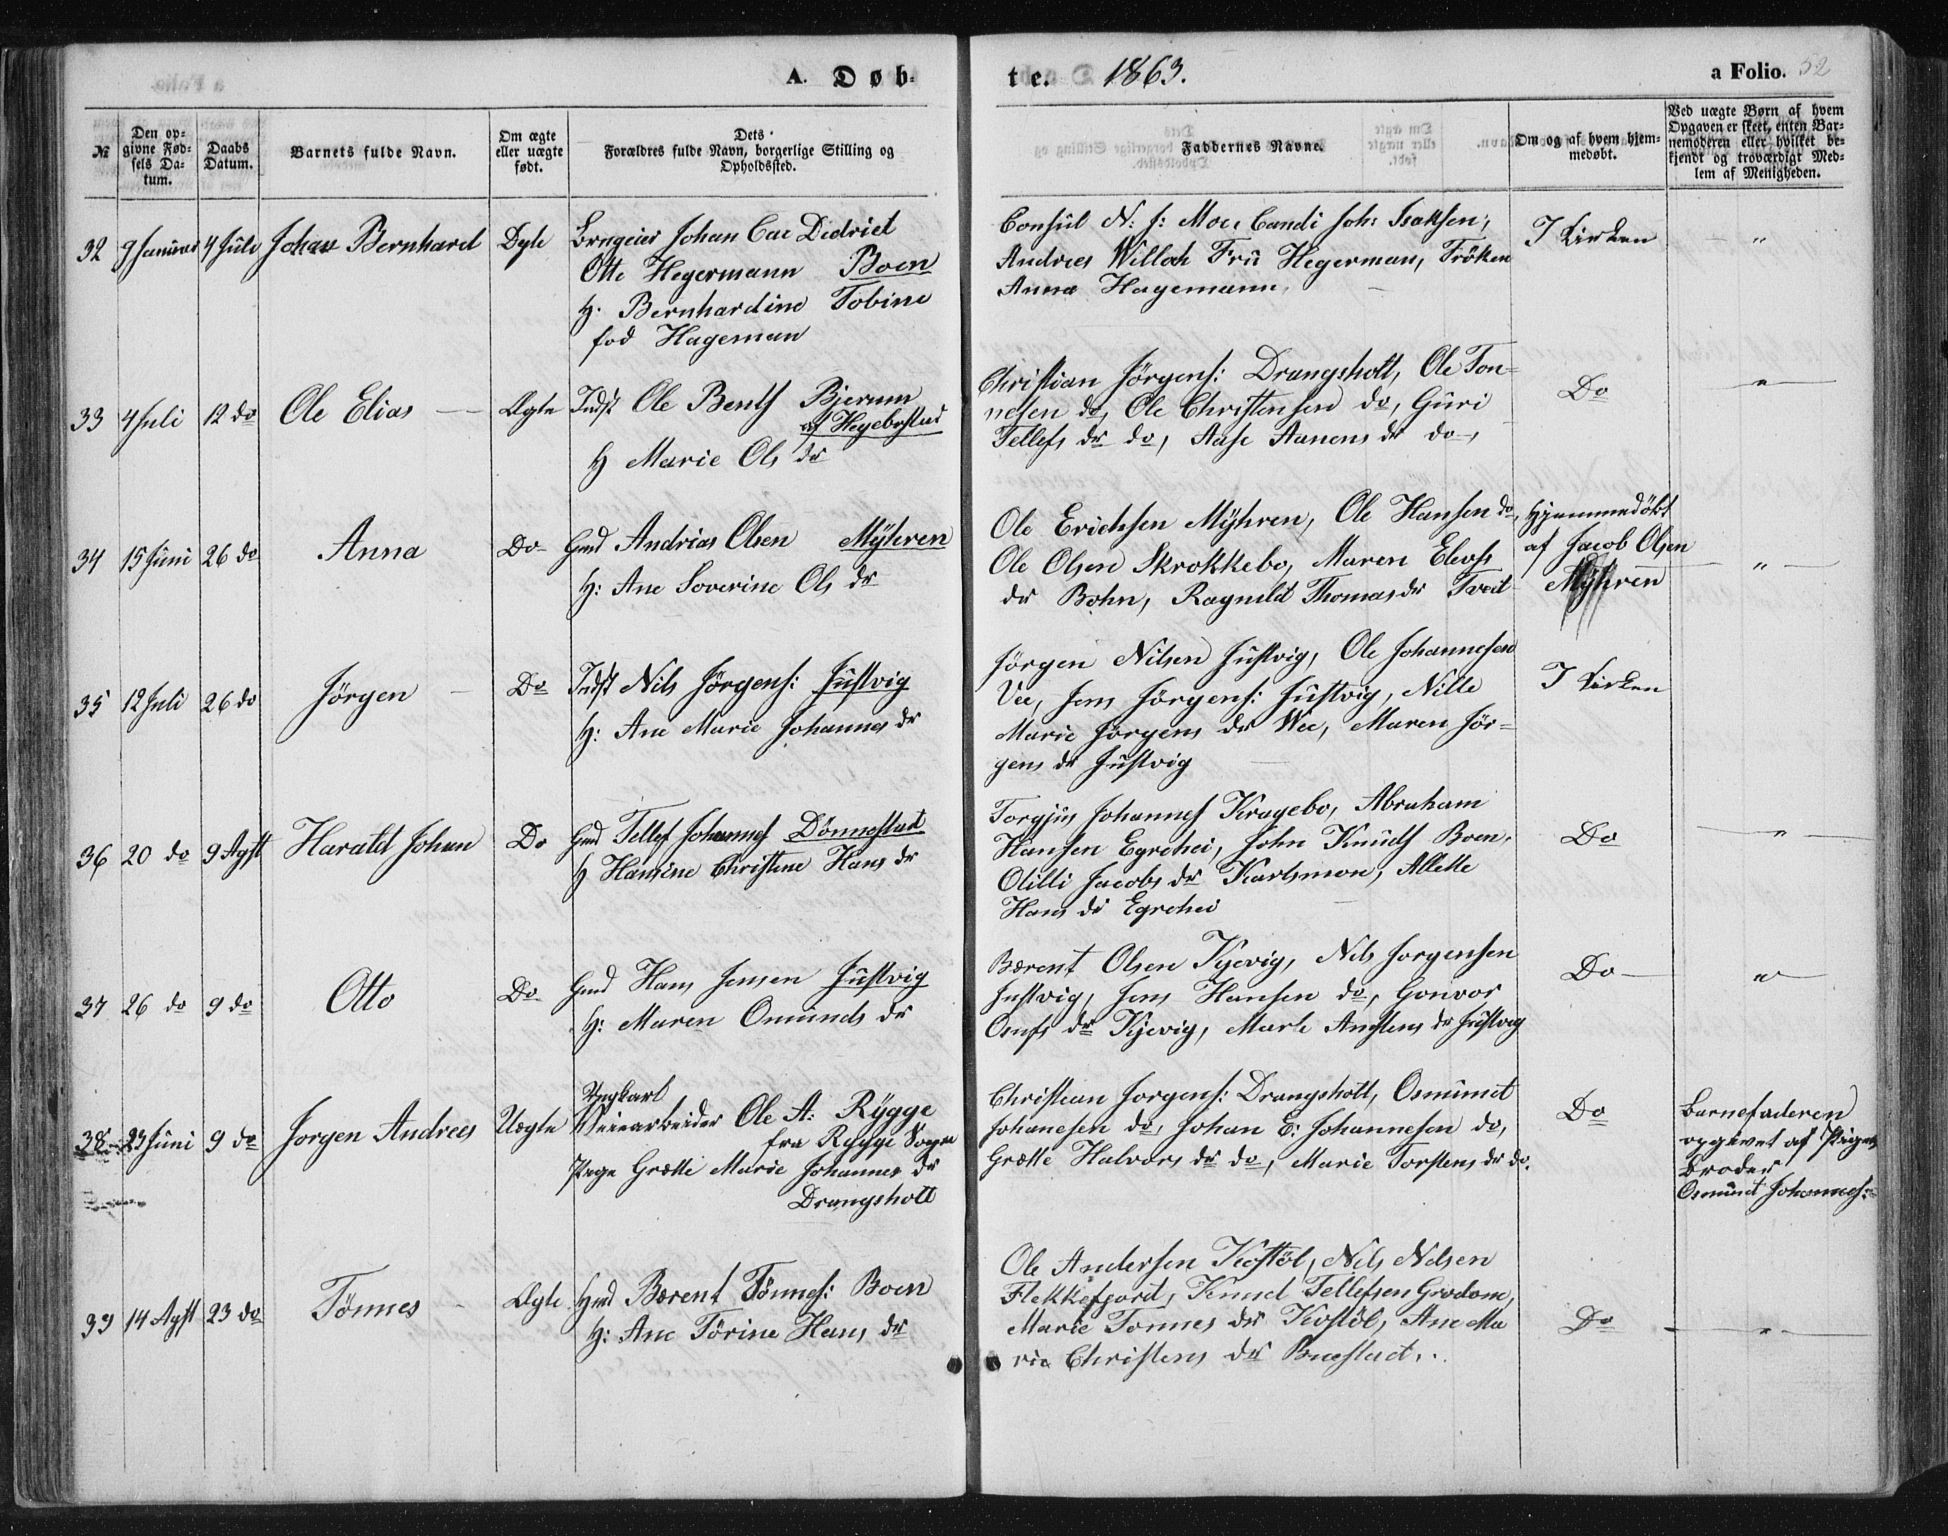 A. Døb-
te. 1863.
a Folio. 52
№
Den op-
givne Fød-
sels Da-
tum.
Daabs
Datum.
Barnets fulde Navn.
Om ægte
eller uægte
født.
Dets
Forældres fulde Navn, borgerlige Stilling og
Opholdssted.
Faddernes Navne.
Om og af hvem hjem-
medøbt.
Ved uægte Børn af hvem
Opgaven er skeet, enten Bar-
nemoderen eller hvilket be-
kjendt og troværdigt Med-
lem af Menigheden.
32 9 Januar 4 Juli Johan Bernhard Ægte
Johan Car Diedriet
Otto Hegermann Boen
H. Bernhardine Tobine
fød Hageman
Consul N. J: Moe, Candi Joh: Isaksen,
Andrees Willoch Fru Hegerman, Frøken
Anna Hagemann,
I Kirken
"
33 4 Juli 12 do Ole Elias Ægte
Indst Ole Bents Bjerum
af Hegebostad
H Marie Ols dr
Christian Jørgens: Drangsholt, Ole Ton-
nesen do, Ole Christensen do, Guri
Tellefs dr do, Aase Aanens dr do,
Do
"
34 15 Juni 26 do Anna Do
Gmd Andrias Olsen Mÿhren
H: Ane Soverine Ols dr
Ole Erichsen Mÿhren, Ole Hansen do,
Ole Olsen Skrokkebo, Maren Elevs
dr Bohn, Ragnild Thomasdr Tveit
Hjemmedøbt
af Jacob Olsen
Mÿhren
"
35 12 Juli 26 do Jörgen Do
Indst Nils Jørgens: Justvig
H: Ane Marie Johannes dr
Jörgen Nilsen Justvig, Ole Johannesen
Vee, Jens Jörgens: Justvig, Nille
Marie Jörgens dr Wee, Maren Jör-
gens dr Justvig
I Kirken
36 20 do 9 Agst Harald Johan Do
Gmd Tellef Johannes Dönnestad
H Hansine Christine Hans dr
Torgjus Johannes Kragebo, Abraham
Hansen Egrehei, John Knuds Boen,
Olilli Jacobs dr Karlsmon, Allette
Hans dr Egrehei
Do
"
37 26 do 9 do Otto Do
Gmd Hans Jensen Justvig
H: Maren Omunds dr
Bærent Olsen Kjevig, Nils Jorgensen
Justvig, Jens Hansen do, Gonvor
Omfs dr Kjevig, Marte Anstens dr Justvig
Do
"
38 23 Juni 9 do Jorgen Andrees Uægte
Ungkarl
Veiearbeider Ole A: Rÿgge
fra Rygge Sogn
Pige Grætte Marie Johannes dr
Drangsholt
Christian Jorgens: Drangsholt, Osmund
Johanesen do, Johan E: Johannesen do,
Grætte Halvors dr do, Marie Torstens dr do.
Do
Barnefaderen
opgivet af Pigens
Broder
Osmund Johannes:
39 14 Agst 23 do Tönnes Ægte
Hmd Bærent Tönnes: Boen
H: Ane Törine Hans dr
Ole Andersen Kostöl, Nils Nilsen
Flekkefjord, Knud Tellefsen Grodom,
Marie Tonnes dr Kostöl, Ane Ma
rie Christens dr Buestad.
Do
"